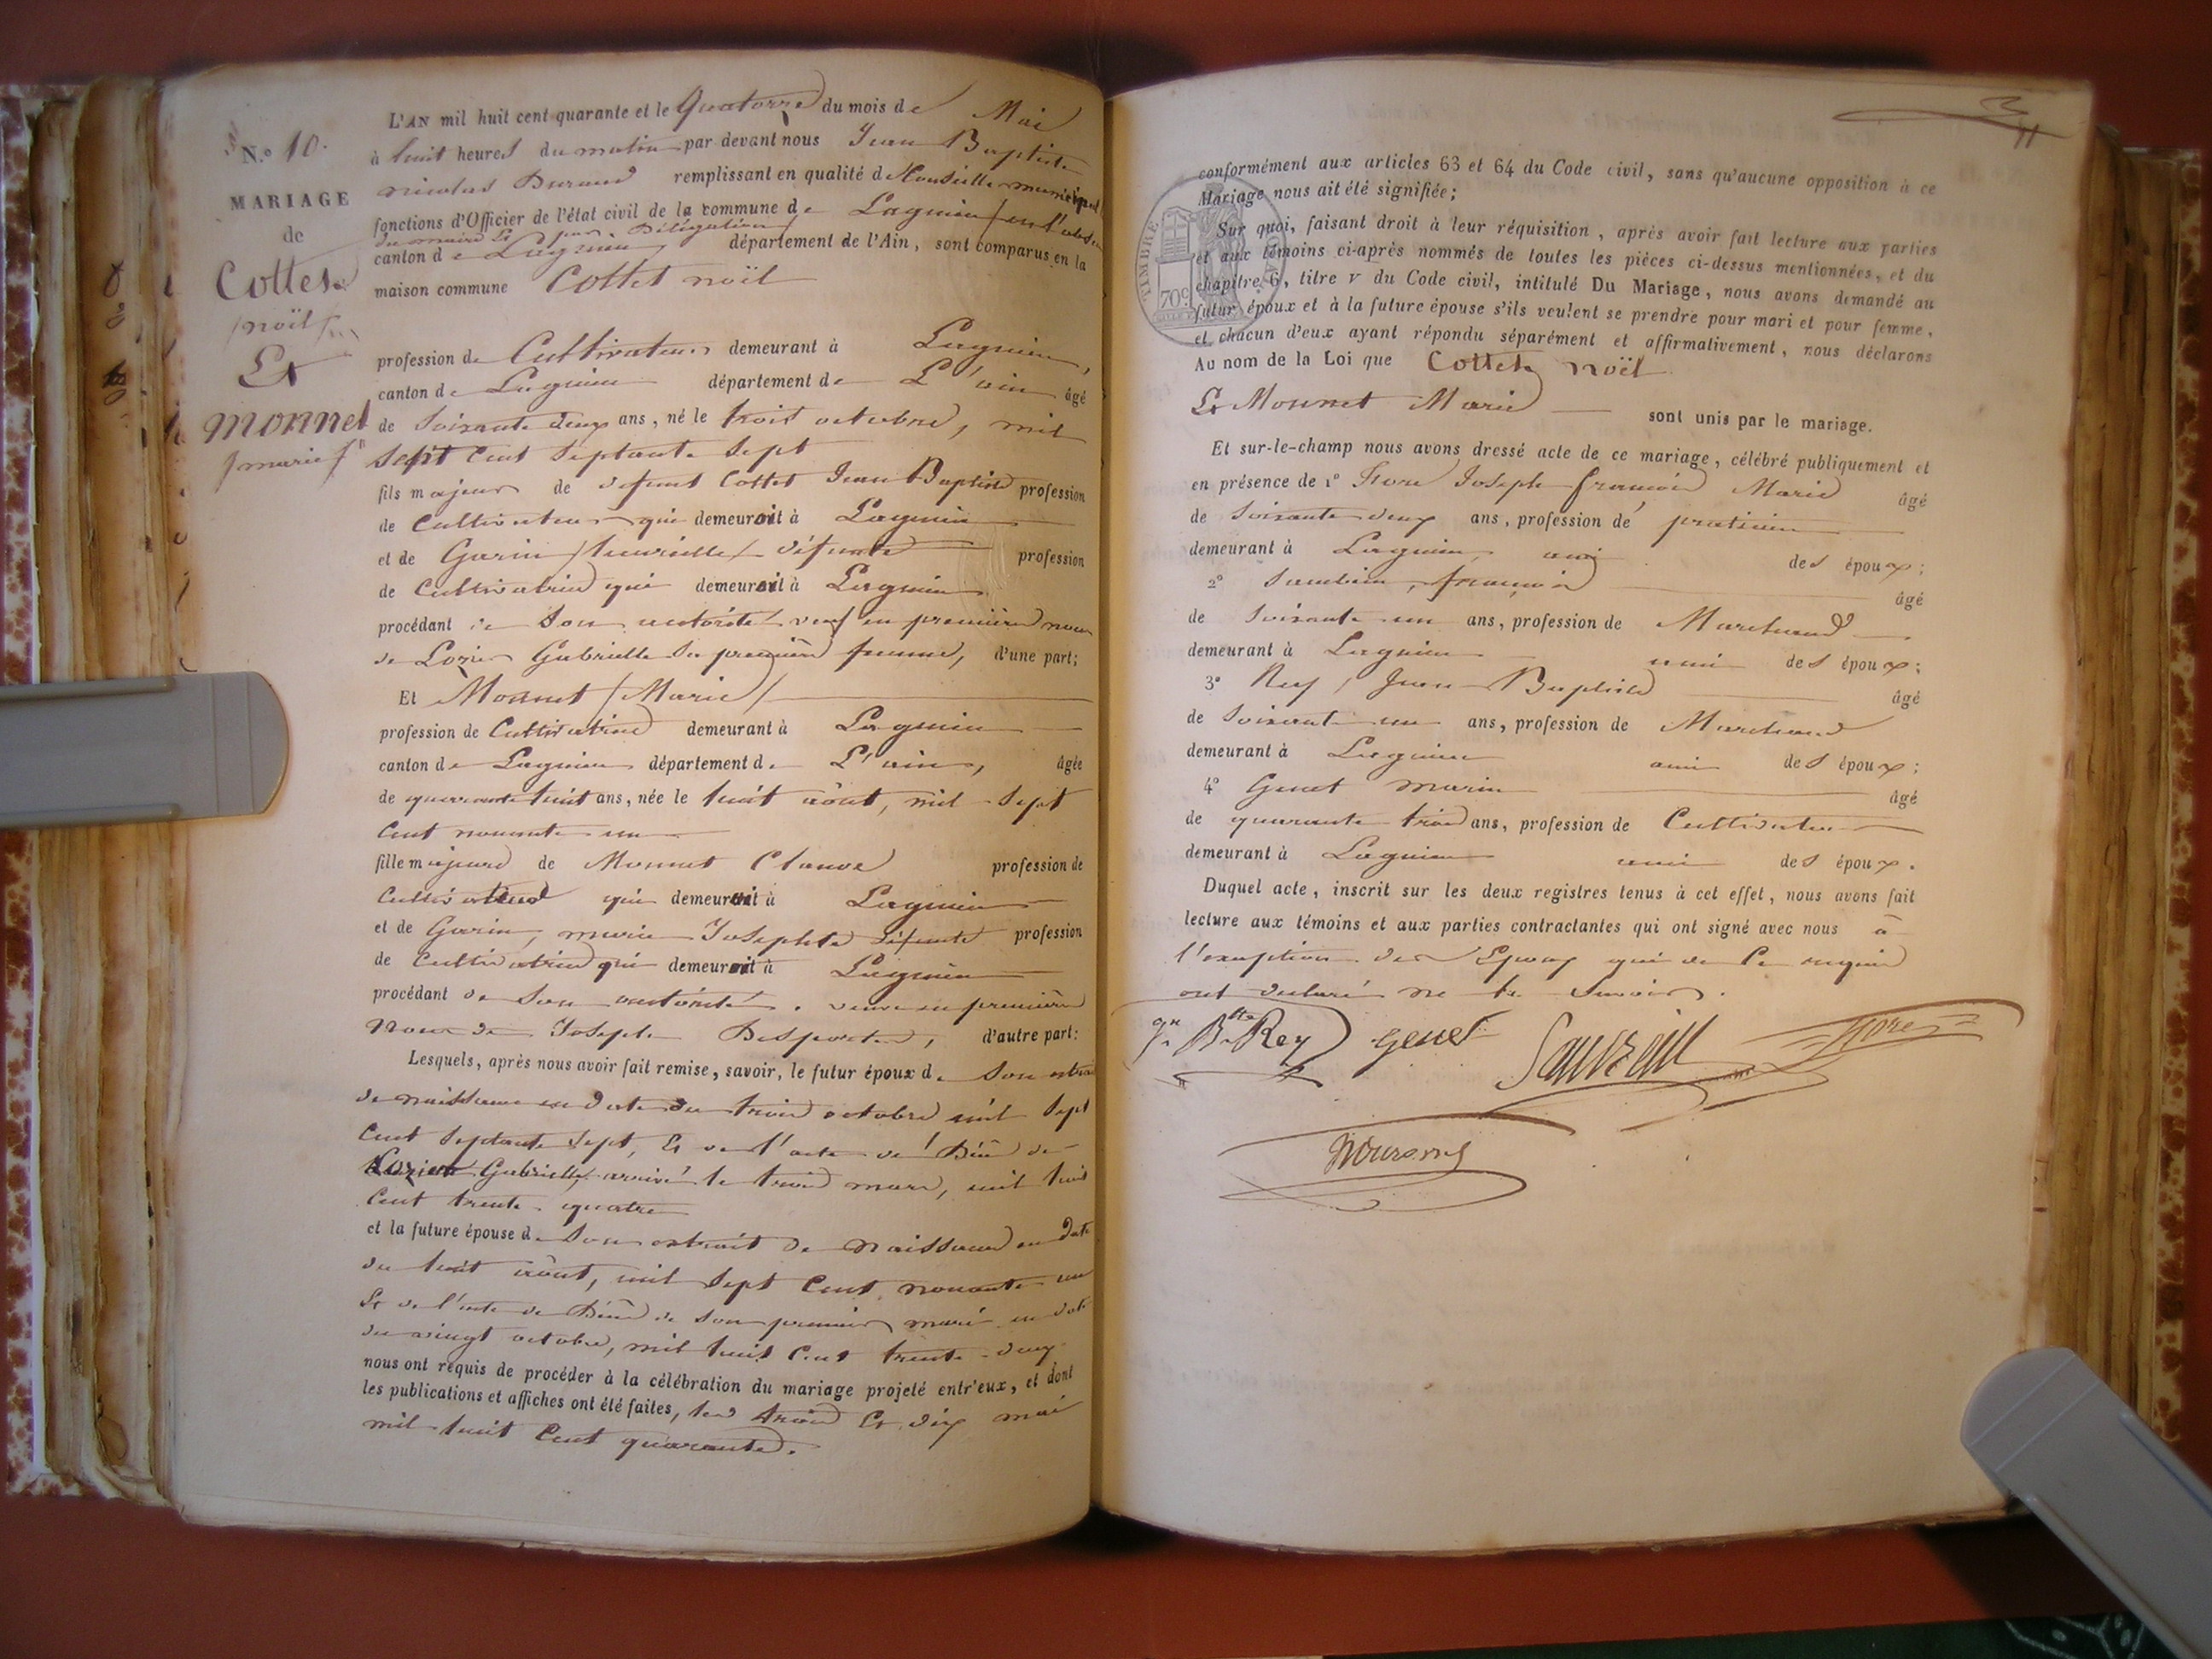 N.º 10.
MARIAGE
de
Cottet
/noël/
Et
Monnet
/marie/
L'AN mil huit cent quarante et le Quatorze du mois de Mai
à huit heures du matin par devant nous Jean Baptiste
nicolas Durand remplissant en qualité de Conseiller municipal
fonctions d'Officier de l'état civil de la commune de Lagnieu / en l'absce
du maire et par Délégation /
canton de Lagnieu département de l'Ain, sont comparus en la
maison commune Cottet noël
profession de Cultivateur demeurant à Lagnieu,
canton de Lagnieu département de L'ain âgé
de Soixante deux ans, né le trois octobre, mil
Sept Cent Septante Sept
fils majeur de défunt Cottet Jean Baptiste profession
de Cultivateur qui demeuroit à Lagnieu
et de Garin / / défunte profession
de Cultivatrice qui demeuroit à Lagnieu
procédant de Son autorité veuf en première noce
de Lozier Gabrielle Sa première femme, d'une part;
Et Monnet / Marie /
profession de Cultivatrice demeurant à Lagnieu
canton de Lagnieu département de L'ain, âgée
de quarante huit ans, née le huit août, mil Sept
Cent nonante un
fille majeure de Monnet Claude profession de
Cultivateur qui demeuroit à Lagnieu
et de Garin, marie Josephte défunte profession
de Cultivatrice qui demeuroit à Lagnieu
procédant de Son autorité. veuve en première
Noce de Joseph Desportes, d'autre part:
Lesquels, après nous avoir fait remise, savoir, le futur époux de Son extrait
de naissance en date du trois octobre mil Sept
Cent Septante Sept, Et de l'acte de Décè de
Lozier Gabrielle, arrivé le trois mars, mil huit
Cent trente quatre
et la future épouse de Son extrait de Naissance en date
du huit août, mil Sept Cent nonante un
Et de l'acte de Décè de Son premier mari en date
du vingt octobre, mil huit Cent trente deux
nous ont requis de procéder à la célébration du mariage projeté entr'eux, et dont
les publications et affiches ont été faites, les trois Et dix mai
mil huit Cent quarante.
TIMBRE
70c
conformément aux articles 63 et 64 du Code civil, sans qu'aucune opposition à ce
Mariage nous ait été signifiée;
Sur quoi, faisant droit à leur réquisition, après avoir fait lecture aux parties
et aux témoins ci-après nommés de toutes les pièces ci-dessus mentionnées, et du
chapitre 6, titre v du Code civil, intitulé Du Mariage, nous avons demandé au
futur époux et à la future épouse s'ils veulent se prendre pour mari et pour femme,
et chacun d'eux ayant répondu séparément et affirmativement, nous déclarons
Au nom de la Loi que Cottet noël
Et Monnet Marie sont unis par le mariage.
Et sur-le-champ nous avons dressé acte de ce mariage, célébré publiquement et
en présence de 1º Joseph françois Marie âgé
de Soixante deux ans, profession de praticien
demeurant à Lagnieu ami des époux;
2º françois âgé
de Soixante un ans, profession de Marchand
demeurant à Lagnieu ami des époux;
3º Rey, Jean Baptiste âgé
de Soixante un ans, profession de Marchand
demeurant à Lagnieu ami des époux;
4º Genet marin âgé
de quarante trois ans, profession de Cultivateur
demeurant à Lagnieu ami des époux.
Duquel acte, inscrit sur les deux registres tenus à cet effet, nous avons fait
lecture aux témoins et aux parties contractantes qui ont signé avec nous à
l'exception des Epoux qui de Ce requis
ont déclaré ne le Savoir.
Jn Bte Rey genet